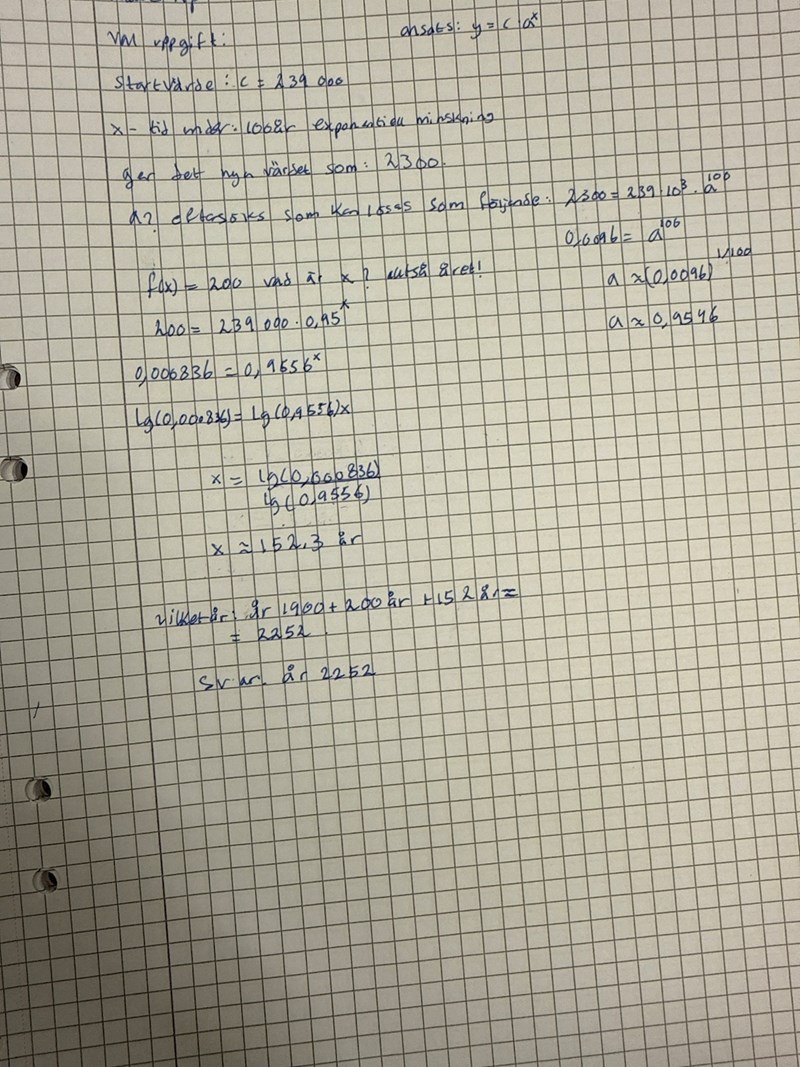 VM uppgift:
ansats: y = c · a^x
Startvärde: c = 239 000
x - tid under: 100år exponentiell minskning
ger det nya värdet som: 2300.
a? eftersöks som kan löses som följande: 2300 = 239·10^3 · a^100
0,0096 = a^100
a ≈ (0,0096)^1/100
a ≈ 0,9546
f(x) = 200 vad är x? alltså året!
200 = 239 000 · 0,95^x
0,000836 = 0,9556^x
lg(0,000836) = lg(0,9556)x
x = lg(0,000836) / lg(0,9556)
x ≈ 152,3 år
vilket år: år 1900 + 200 år + 152 år =
= 2252
Svar: år 2252